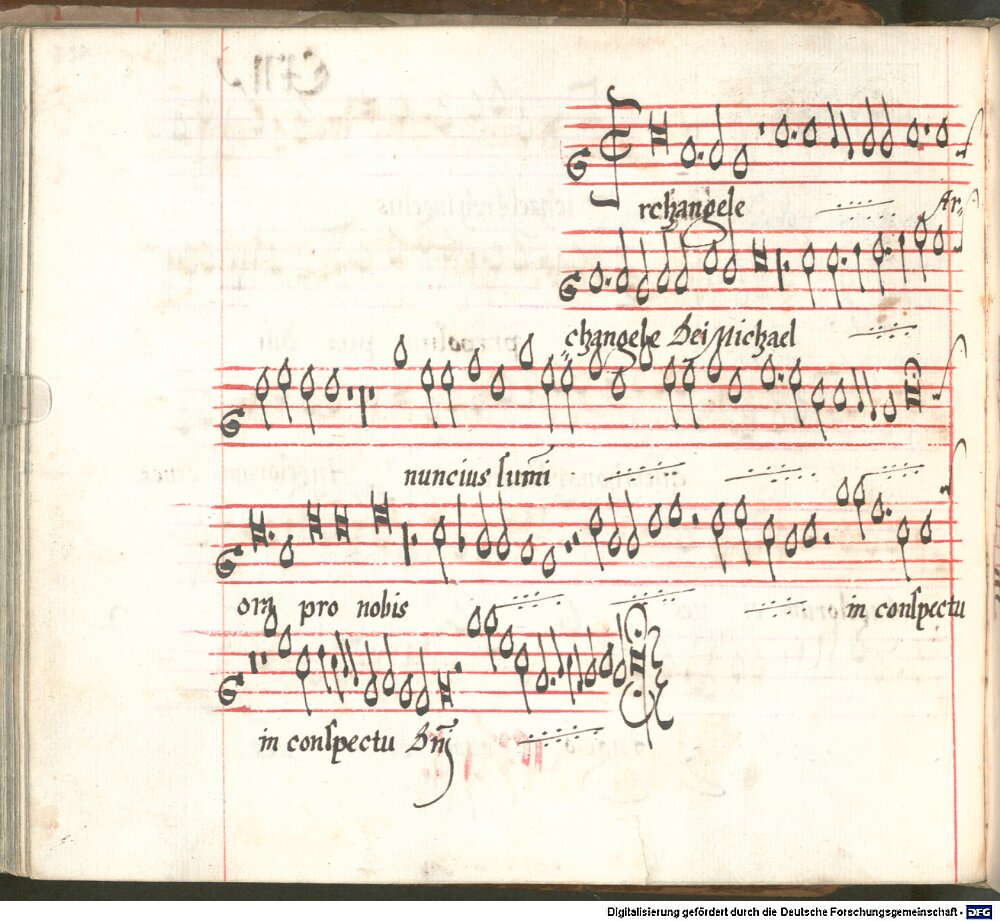 rchangele Ar-
changele Dei Michael
nuncius sum̄i
ora pro nobis in conspectu
in conspectu Dn̄j
Digitalisierung gefördert durch die Deutsche Forschungsgemeinschaft - DFG